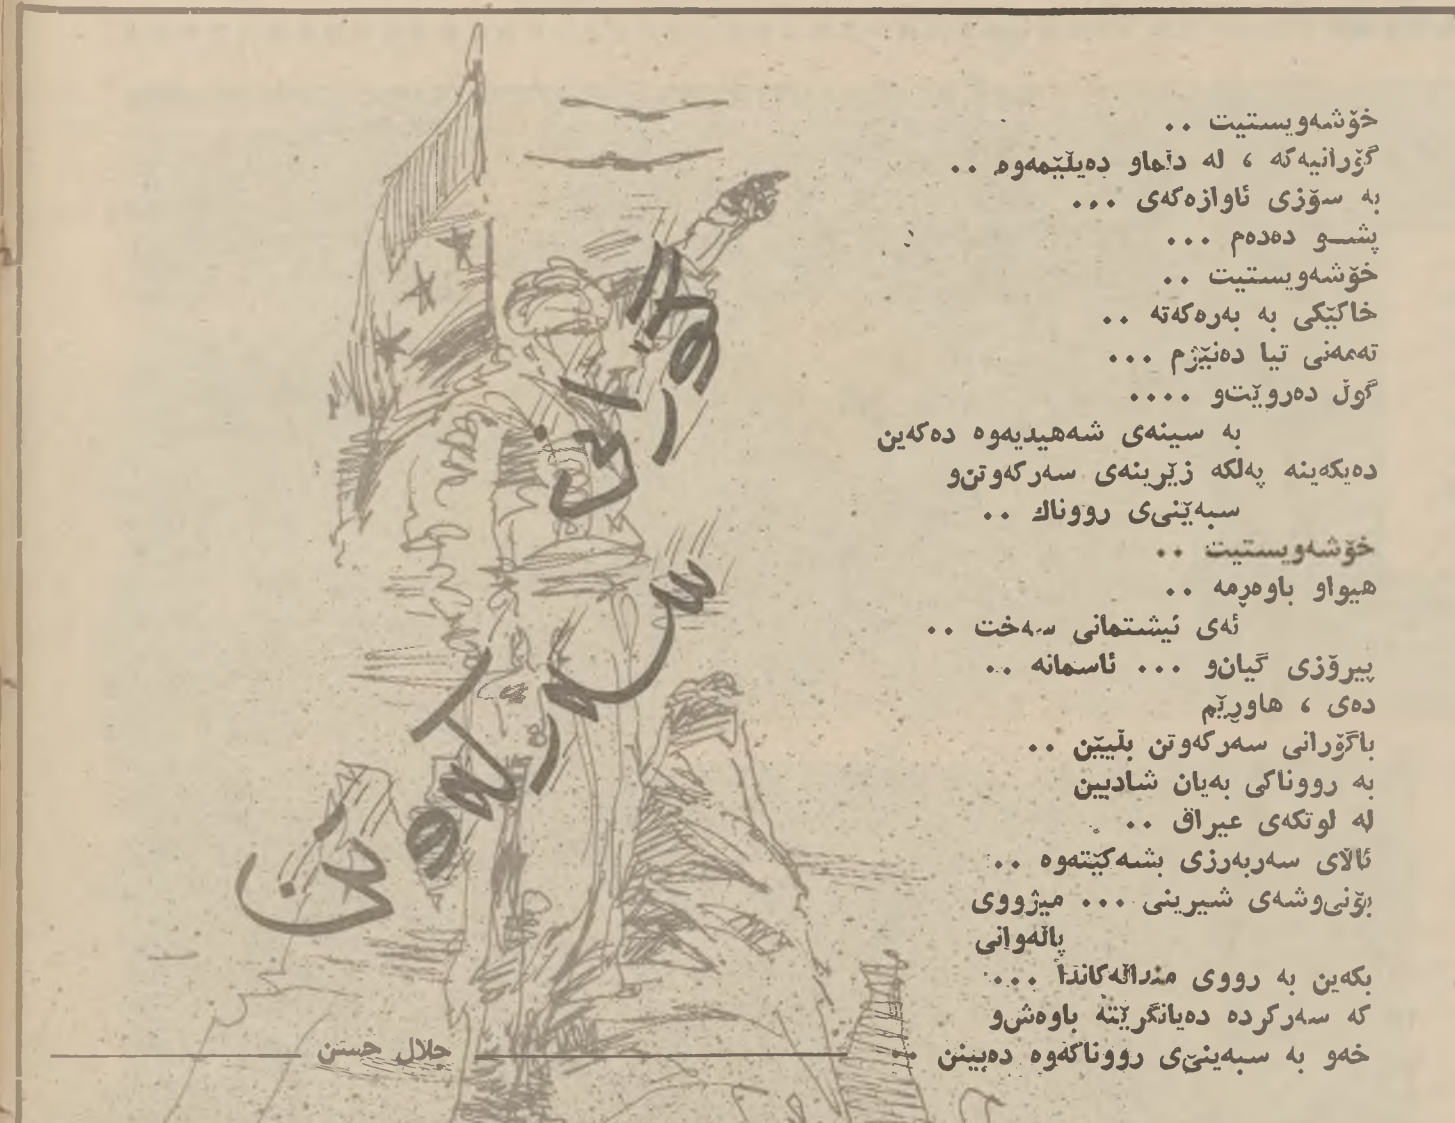 گۆرانی سەرکەوتن
خۆشەویستیت ..
گۆرانیەکە ، لە دڵماو دەیڵێمەوە ..
بە سۆزی ئاوازەکەی ...
پشــو دەدەم ...
خۆشەویستیت ..
خاکێکی بە بەرەکەتە ..
تەمەنی تیا دەنێژم ...
گوڵ دەروێت‌و ....
بە سینەی شەهیدیەوە دەکەین
دەیکەینە پەلکە زێرینەی سەرکەوتن‌و
سبەێنی‌ی رووناك ..
خۆشەویستیت ..
هیواو باوەڕمە ..
ئەی نیشتمانی سەخت ..
پیرۆزی گیان‌و ... ئاسمانە ..
دەی ، هاوڕێم
باگۆرانی سەرکەوتن بڵیێن ..
بە رووناکی بەیان شادبین
لە لوتکەی عیراق ..
ئاڵای سەربەرزی بشەکێتەوە ..
بۆنی‌وشەی شیرینی ... میژووی
پاڵەوانی
بکەین بە رووی منداڵەکاندا ...
کە سەرکردە دەیانگرێتە باوەش‌و
خەو بە سبەینێ‌ی رووناکەوە دەبینن ..
جلال حسن